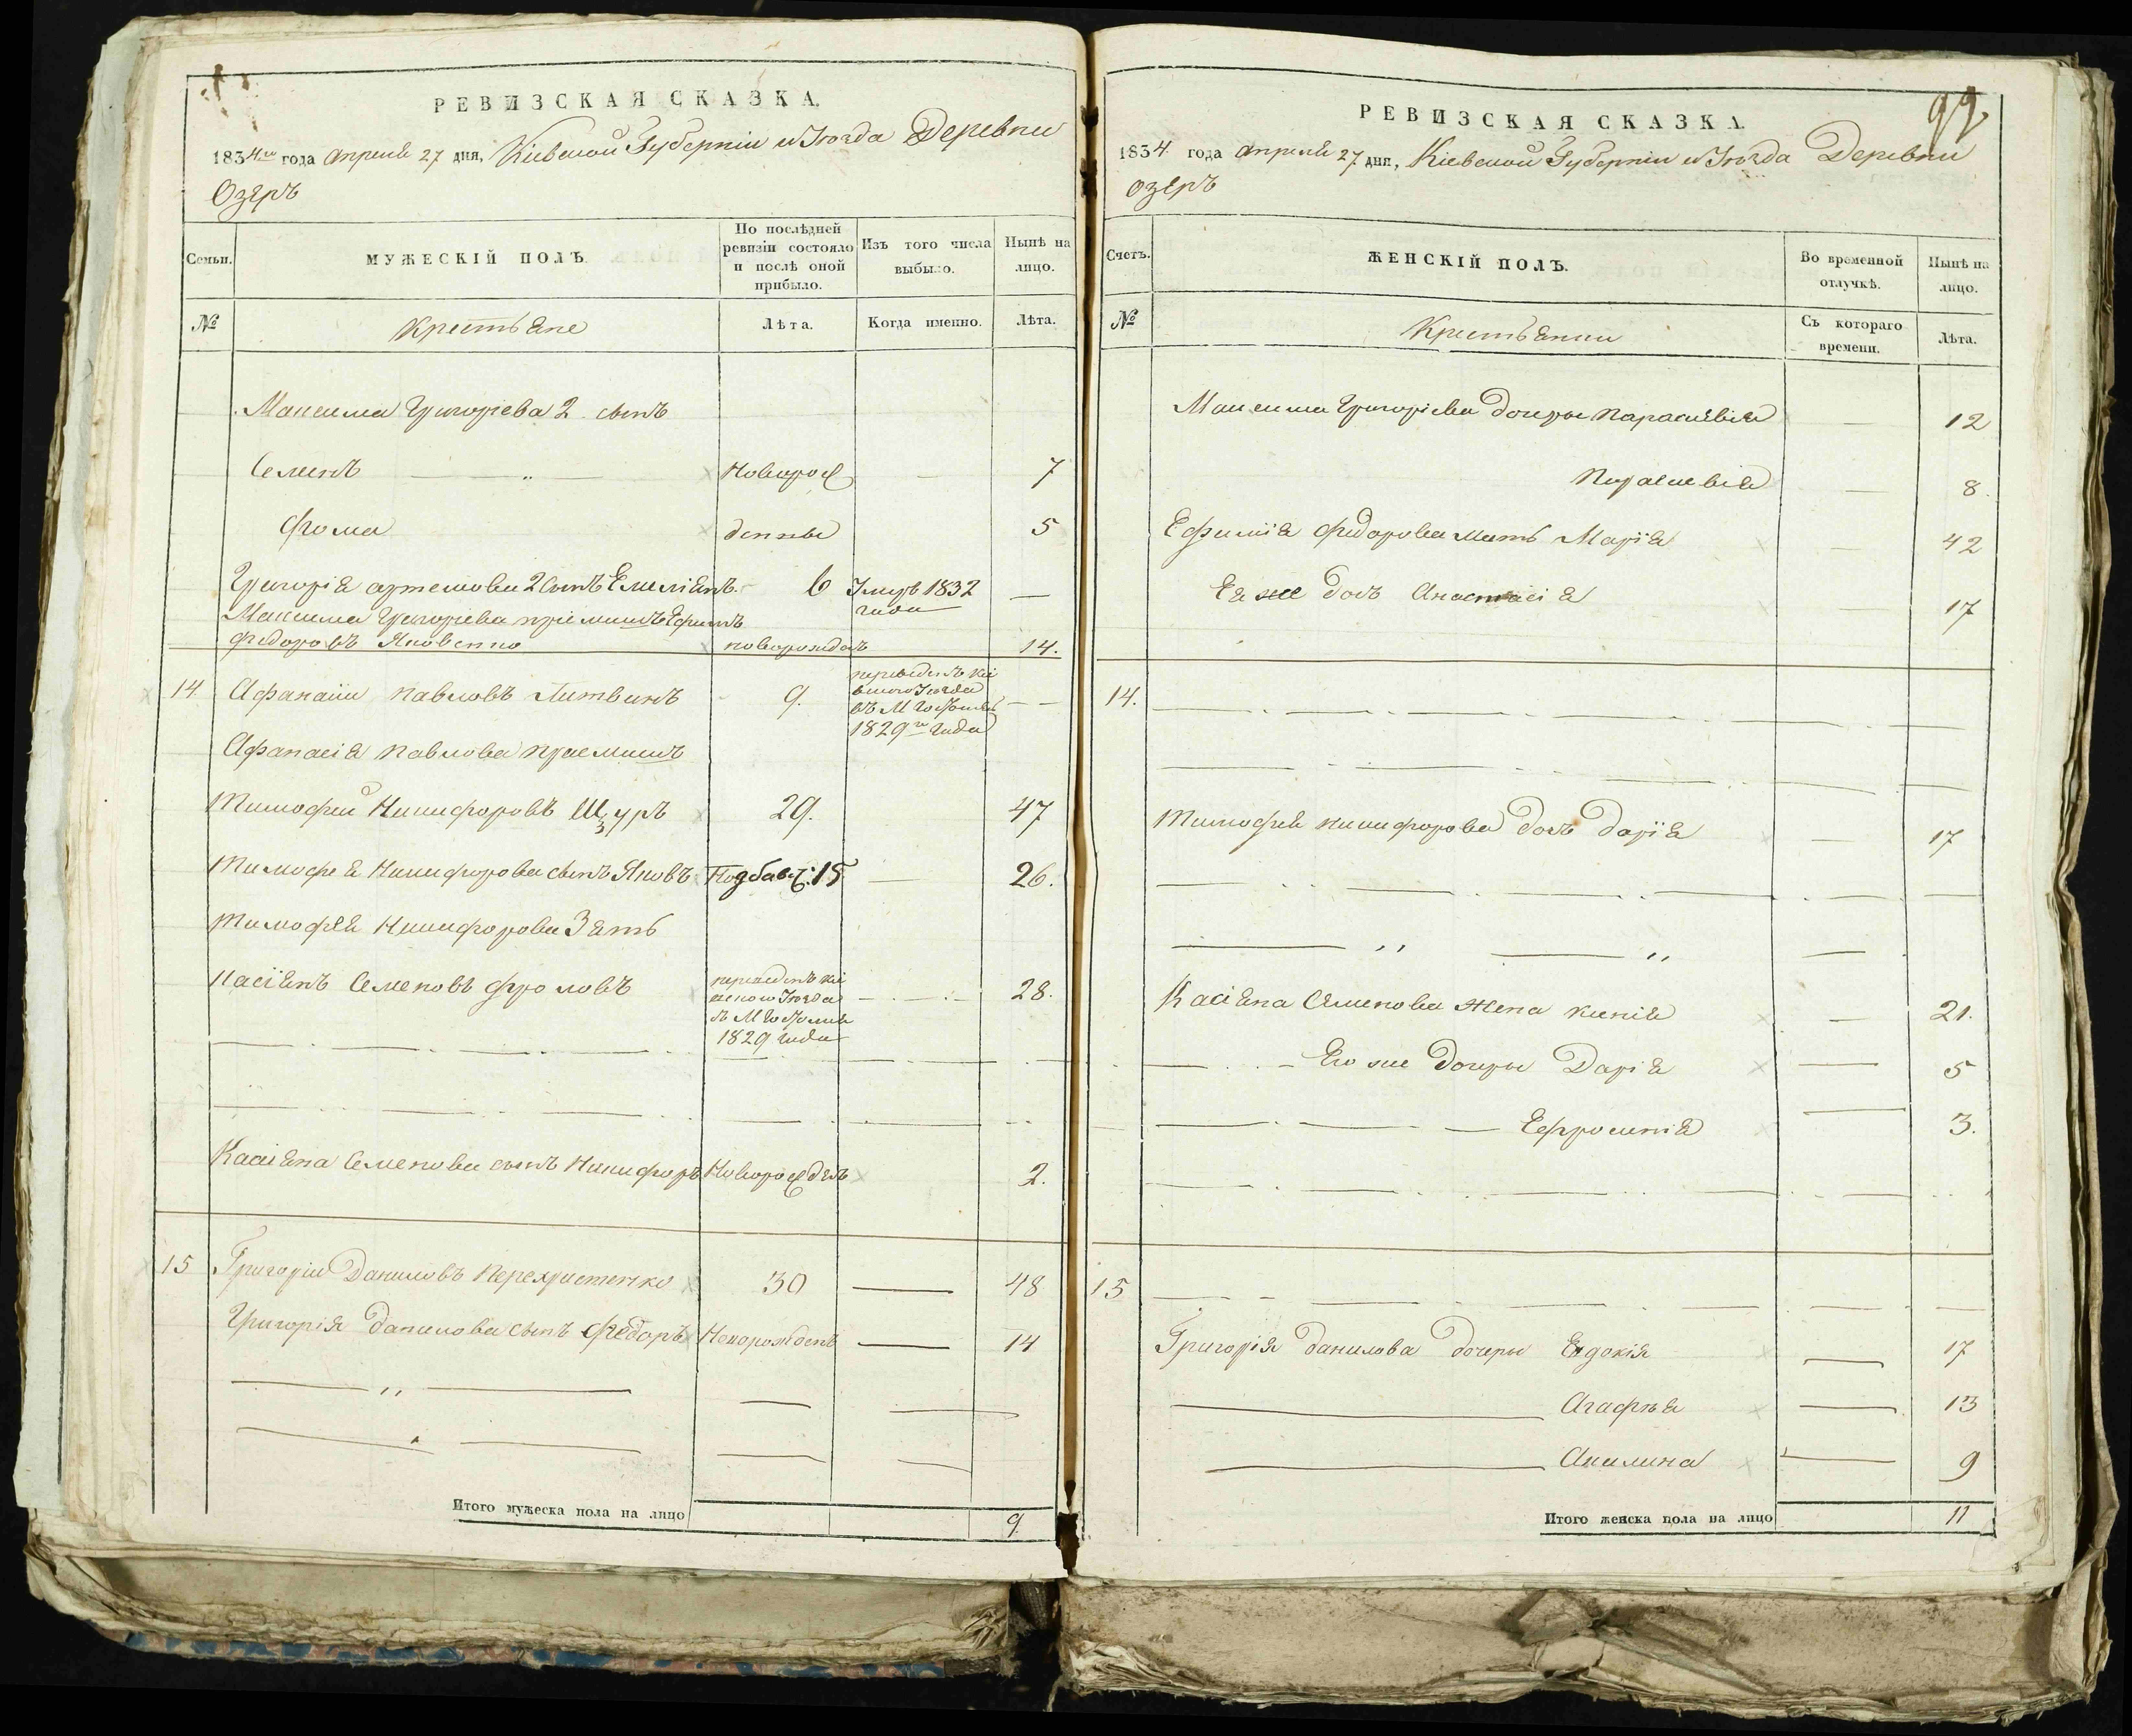 РЕВИЗСКАЯ СКАЗКА.
1834го года апреля 27 дня, Кіевской Губерніи и Уѣзда Деревни
Озеръ
Семьи.
МУЖЕСКІЙ ПОЛЪ.
По послѣдней ревизіи состояло и послѣ оной прибыло.
Изъ того числа выбыло.
Нынѣ на лицо.
№
Крестьяне
Лѣта.
Когда именно.
Лѣта.
Максима Григорьева 2 сынъ
Семенъ новорож 7
Фома денны 5
Григорія артемова 2 сынъ Емеліянъ 6 Умеръ 1832 года —
Максима Григорьева пріемышъ Ефимъ
Федоровъ Яковенко новорожденъ 14.
14 Афанасій Павловъ Литвинъ 9. переведенъ Кіевского Уѣзда 1829го года — —
Афанасія Павлова Пріемышъ
Тимофей Никифоровъ Щуръ 29. 47
Тимофея Никифорова сынъ Яковъ 15 — 26.
Тимофея Никифорова Зять
Касіянъ Семеновъ Фроловъ переведенъ Кіевского Уѣзда 1829 года 28.
Касіяна Семенова сынъ Никифоръ Новорожденъ 2.
15 Григорій Даниловъ Перехристенко 30 — 48
Григорія данилова сынъ Федоръ Новорожденъ — 14
Итого мужеска пола на лицо 9.
99
РЕВИЗСКАЯ СКАЗКА.
1834 года апреля 27 дня, Кіевской Губерніи и Уѣзда Деревни
Озеръ
Счетъ.
ЖЕНСКІЙ ПОЛЪ.
Во временной отлучкѣ.
Нынѣ на лицо.
№
Крестьянки
Съ котораго времени.
Лѣта.
Максима Григорьева дочеры Параскевія — 12
Параскевія — 8.
Ефимія Федорова мать Марія — 42
Ея же дочь Анастасія — 17
14.
Тимофея Никифорова дочь Дарія — 17
Касіяна Семенова Жена Ксенія — 21.
Его же Дочеры Дарія — 5
Ефросинія — 3.
15
Григорія данилова дочеры Евдокія — 17
Агафья — 13
Акилина — 9
Итого женска пола на лицо 11